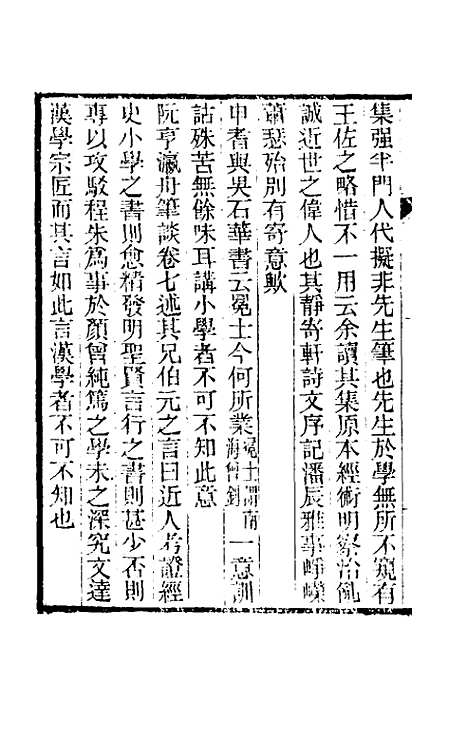 集强半門人代擬非先生筆也先生於學無所不窺有
王佐之略惜不一用云余讀其集原本經術明察治亂
誠近世之偉人也其靜寄軒詩文序記潘辰雅事崢嶸
蕭瑟殆別有寄意歟
申耆與吳石華書云冕士今何所業冕士謂南海曾釗一意訓
詁殊苦無餘味耳講小學者不可不知此意
阮亨瀛舟筆談卷七述其兄伯元之言曰近人考證經
史小學之書則愈精發明聖賢言行之書則甚少否則
專以攻駁程朱爲事於顏曾純篤之學未之深究文達
漢學宗匠而其言如此言漢學者不可不知也